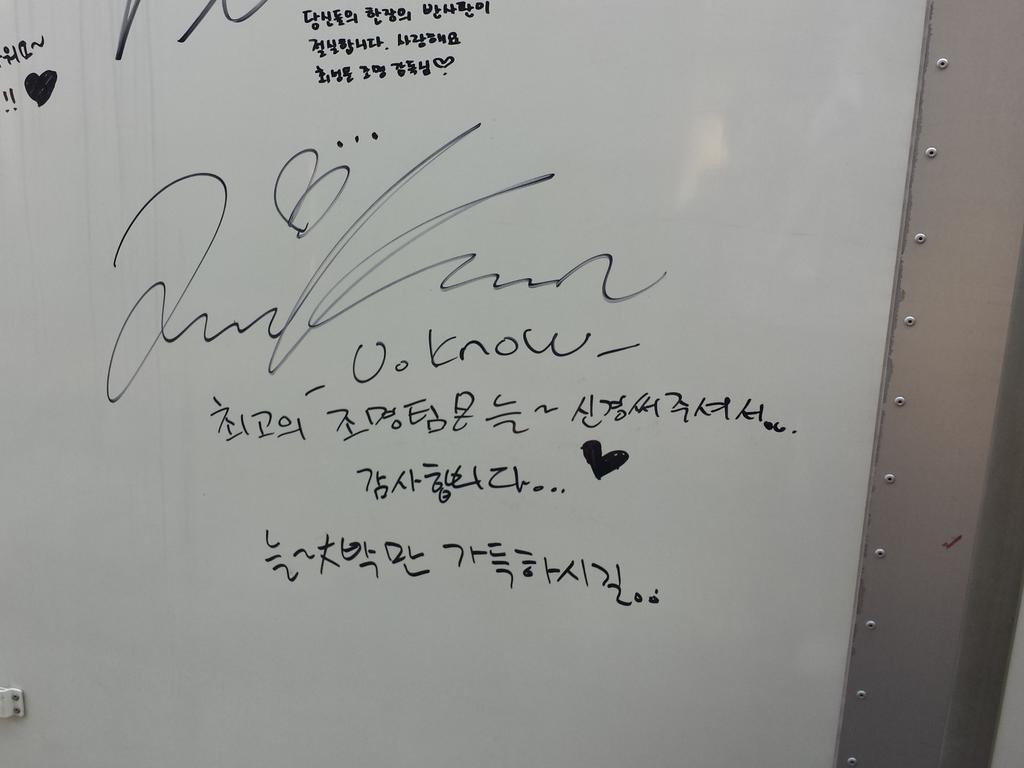 당신들의 한장의 반사판이
절실합니다. 사랑해요
조명 감독님♡
워요~
!! ♥
U. Know
최고의 조명팀분 늘~ 신경써주셔서...
감사합니다... ♥
늘~大박만 가득하시길..